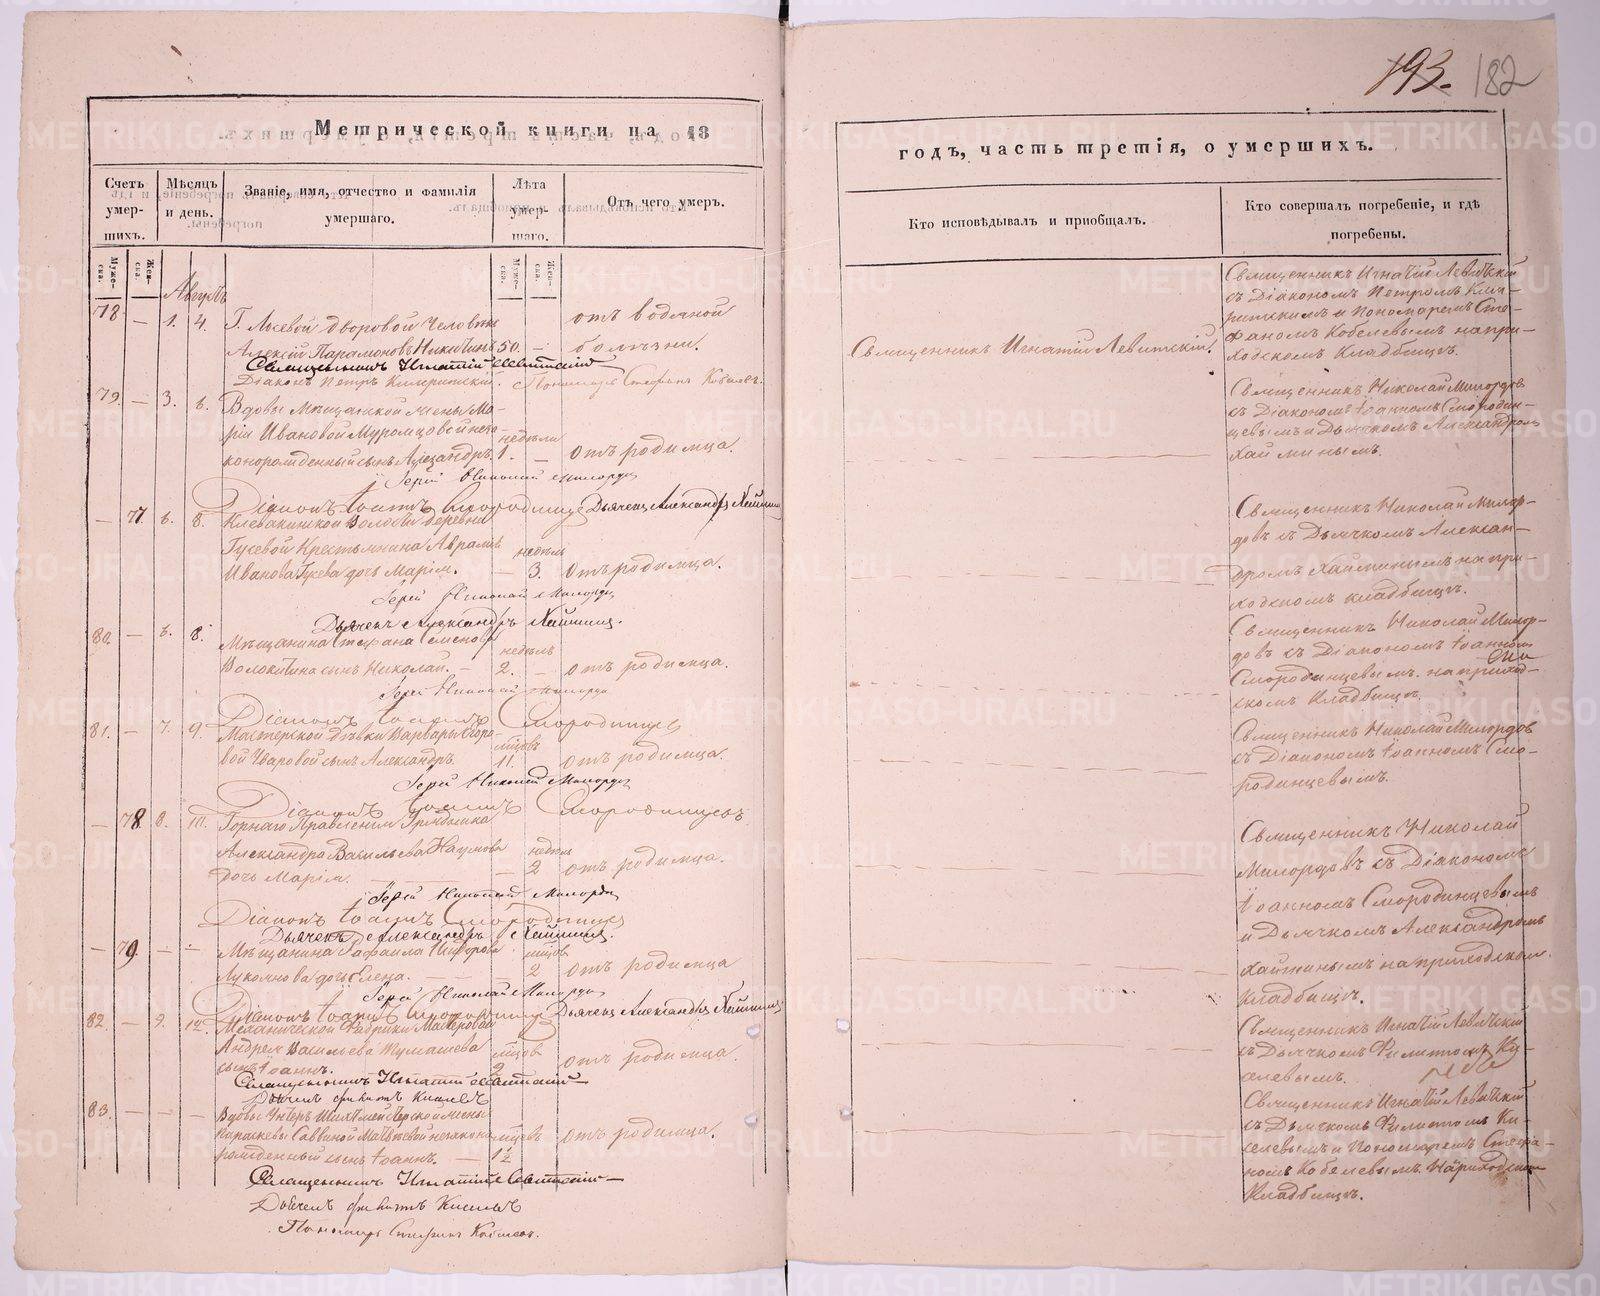 193. 182
Метрической книги на 18
годъ, часть третія, о умершихъ.
Счетъ умер-шихъ.
Мѣсяцъ и день.
Званіе, имя, отчество и фамилія умершаго.
Лѣта умер-шаго.
Отъ чего умер.
Кто исповѣдывалъ и приобщалъ.
Кто совершалъ погребеніе, и гдѣ погребены.
Муже-ска.
Жен-ска.
Муже-ска.
Жен-ска.
Августъ
78. — 1. 4. Г. Дворовой Человѣкъ
Алексій Парамоновъ Никитинъ 50. —
отъ водяной
болѣзни.
Священникъ Игнатій Левитскій.
Священникъ Игнатій Левитскій
съ Діакономъ Петромъ
и Пономаремъ Сте-
фаномъ Кобелевымъ на при-
ходскомъ Кладбищѣ.
Священникъ Игнатій Левитскій
Діаконъ Петръ Пономарь Стефанъ Кобелевъ.
79. — 3. 6. Вдовы Мѣщанской жены Ма-
ріи Ивановой Муромцовой неза-
коннорожденный сынъ Александръ. недѣли 1. — отъ родимца.
Священникъ Николай Милордовъ
съ Діакономъ Іоанномъ Смородин-
цевымъ и Дьячкомъ Александромъ
Іерей Николай Милордовъ
Діаконъ Іоаннъ Смородинцевъ Дьячекъ Александръ
— 77. 6. 8. Клевакинской Волости деревни
Гусевой Крестьянина Аврамія
Иванова Гусева дочь Марія. — недѣль 3. отъ родимца.
Священникъ Николай Милор-
довъ съ Дьячкомъ Алексан-
дромъ на при-
ходскомъ кладбищѣ.
Іерей Николай Милордовъ
Дьячекъ Александръ
80. — 6. 8. Мѣщанина Стефана Семенова
Волокитина сынъ Николай. — недѣль 2. — отъ родимца.
Священникъ Николай Милор-
довъ съ Діакономъ Іоанномъ
Смородинцевымъ на приход-
скомъ Кладбищѣ
Іерей Николай Милордовъ
Діаконъ Іоаннъ Смородинцевъ
81. — 7. 9. Мастерской дѣвки Варвары Егоро-
вой Уваровой сынъ Александръ. мцовъ 11. отъ родимца.
Священникъ Николай Милордовъ
съ Діакономъ Іоанномъ Смо-
родинцевымъ.
Іерей Николай Милордовъ
Діаконъ Іоаннъ Смородинцевъ
— 78. 8. 10. Горнаго Правленія Урядника
Александра Васильева Наумова
дочь Марія. — недѣл 2 отъ родимца.
Священникъ Николай
Милордовъ съ Діакономъ
Іоанномъ Смородинцевымъ
и Дьячкомъ Александромъ
на приходскомъ
Кладбищѣ.
Іерей Николай Милордовъ
Діаконъ Іоаннъ Смородинцевъ
Дьячекъ Александръ
— 79. — — Мѣщанина Рафаила Никифорова
Луконкова дочь Елена. — мцовъ 2 отъ родимца
Іерей Николай Милордовъ
Діаконъ Іоаннъ Смородинцевъ Дьячекъ Александръ
82. — 9. 12. Механической Фабрики Мастероваго
Андрея Васильева Тумашева
сынъ Іоаннъ. мцов 2 отъ родимца.
Священникъ Игнатій Левитскій
съ Дьячкомъ Филиппомъ Ки-
селевымъ.
Священникъ Игнатій Левитскій
Дьячекъ Филиппъ Киселевъ
83. — — — Вдовы Унтеръ Шихтмейстерской жены
Параскевы Саввиной Матвѣевой незаконно
рожденный сынъ Іоаннъ. — мцевъ 1½ отъ родимца.
Священникъ Игнатій Левитскій
съ Дьячкомъ Филиппомъ Ки-
селевымъ и Пономаремъ Стефа-
номъ Кобелевымъ. На приходскомъ
Кладбищѣ.
Священникъ Игнатій Левитскій
Дьячекъ Филиппъ Киселевъ
Пономарь Стефанъ Кобелевъ.
METRIKI.GASO-URAL.RU